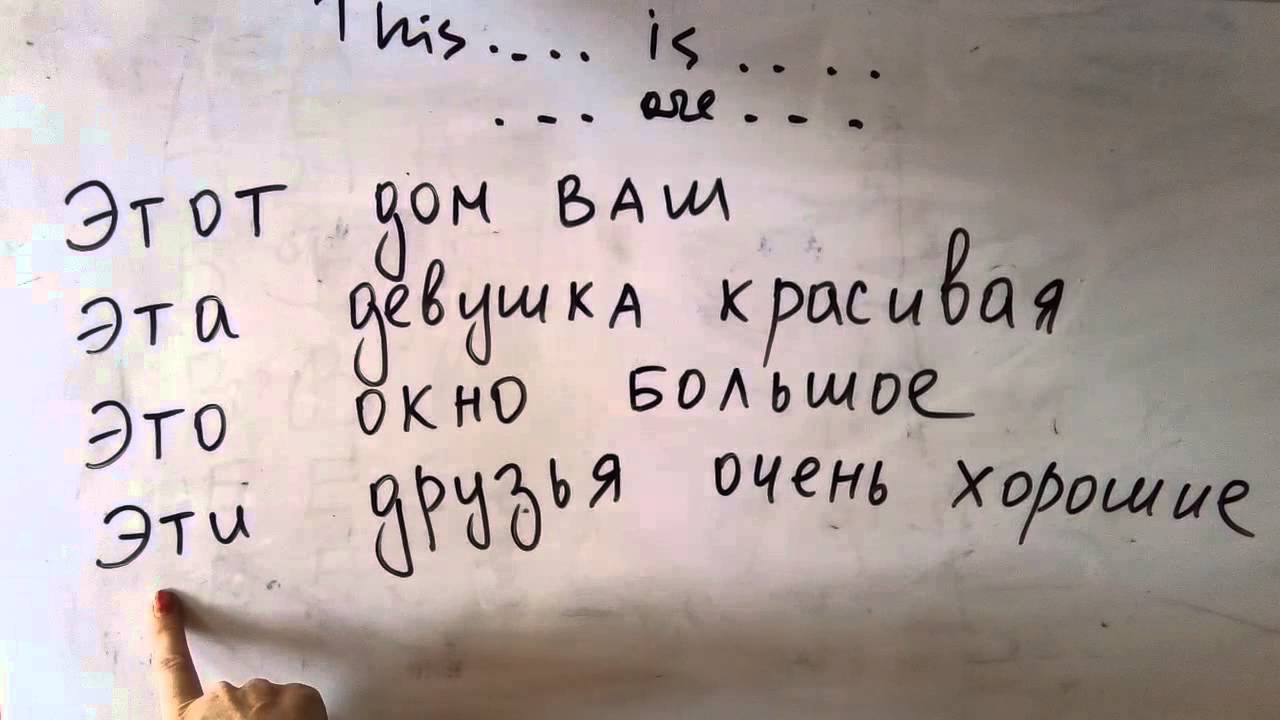 This.... is ....
... are ...
Этот дом ваш
Эта девушка красивая
Это окно большое
Эти друзья очень хорошие